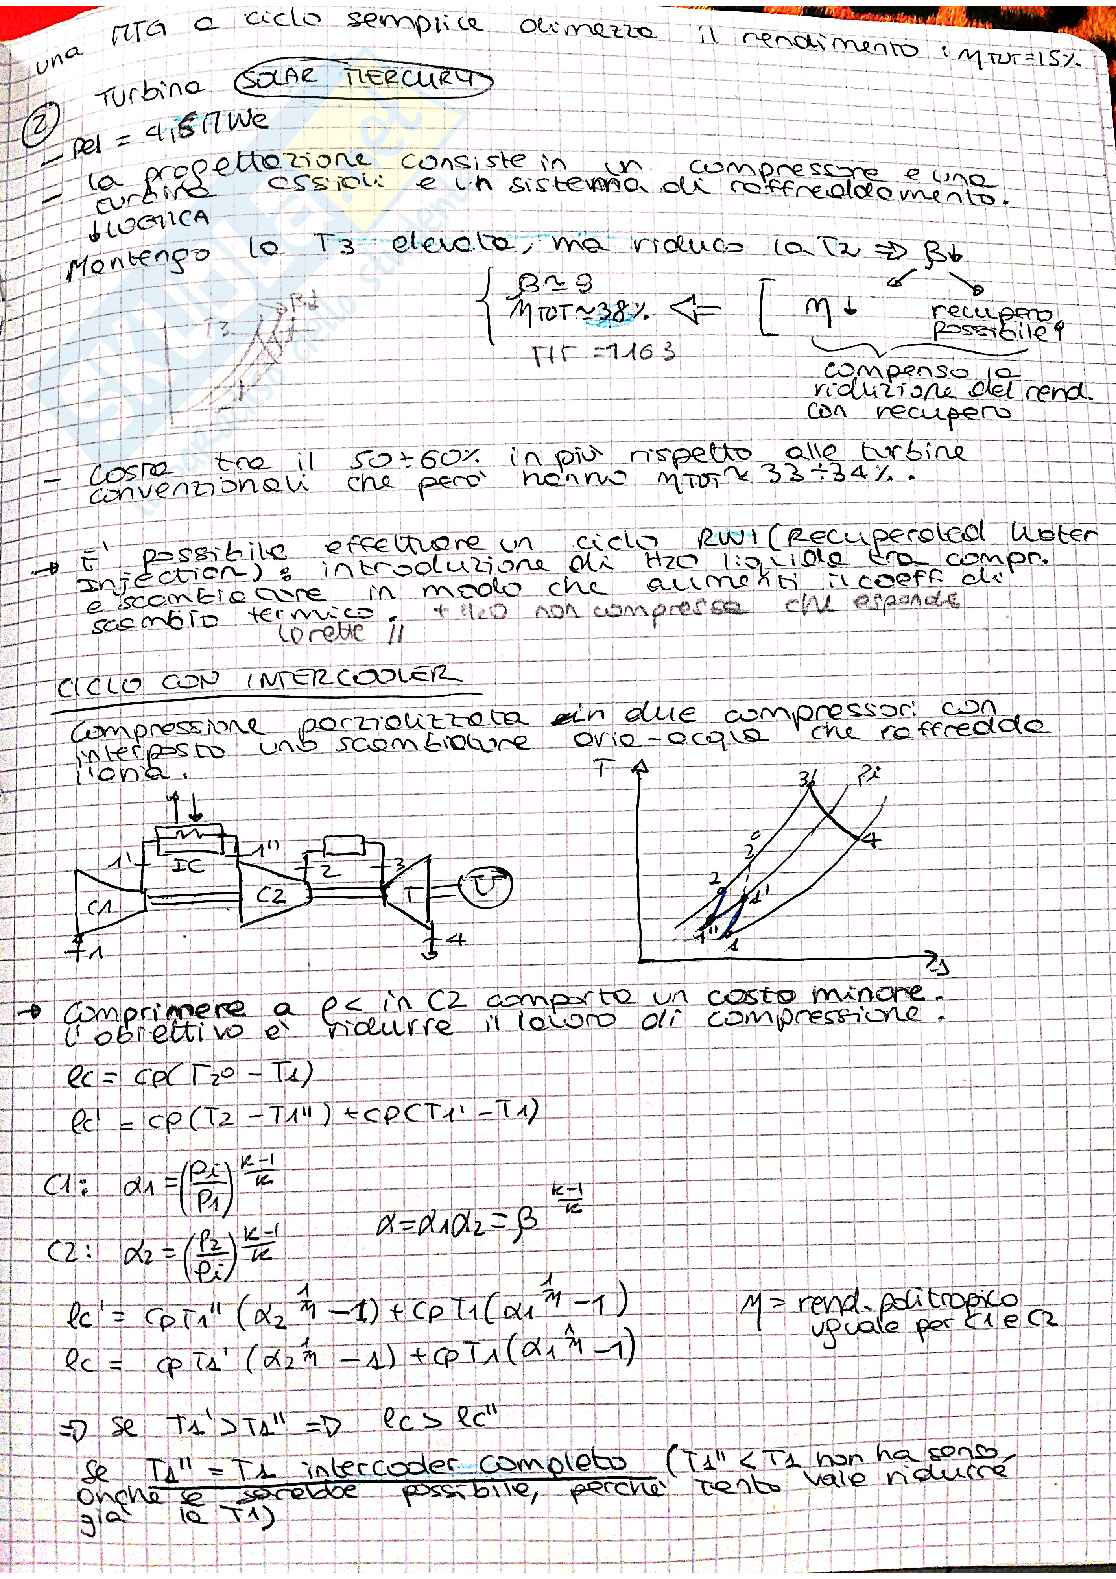 una MTG a ciclo semplice dimezza il rendimento : ηTOT=15%
② Turbina SOLAR MERCURY
- Pel = 4,6 MWe
- La progettazione consiste in un compressore e una
turbina assiali e un sistema di raffreddamento.
↓ LOGICA
Mantengo la T3 elevata, ma riduco la T2 => β↓
β≃9
ηTOT≃38% <= [ η↓ recupero possibile
TIT = 1163
compenso la
riduzione del rend.
con recupero
T3
- Costa tra il 50÷60% in più rispetto alle turbine
convenzionali che però hanno ηTOT≃33÷34%.
→ E' possibile effettuare un ciclo RWI (Recuperated Water
Injection): introduzione di H2O liquida tra compr.
e scambiatore in modo che aumenti il coeff. di
scambio termico. + H2O non compressa che espande
CICLO CON INTERCOOLER
Compressione parzializzata in due compressori con
interposto uno scambiatore aria-acqua che raffredda
l'aria.
1' IC 1'' 2 3
C1 C2 T U
1 4
T 3 Pi
4
2°
2 1'
1'' 1
s
→ Comprimere a ρ< in C2 comporta un costo minore.
L'obiettivo è ridurre il lavoro di compressione.
lc = cp(T2° - T1)
lc' = cp(T2 - T1'') + cp(T1' - T1)
C1: α1 = (Pi/P1)^(k-1/k)
α = α1α2 = β^(k-1/k)
C2: α2 = (P2/Pi)^(k-1/k)
lc' = cpT1'' (α2^(1/η) - 1) + cpT1(α1^(1/η) - 1)
η = rend. politropico
uguale per C1 e C2
lc = cpT1' (α2^(1/η) - 1) + cpT1(α1^(1/η) - 1)
=> se T1' > T1'' => lc > lc''
Se T1'' = T1 intercooler completo (T1'' < T1 non ha senso,
anche se sarebbe possibile, perché tanto vale ridurre
già la T1)